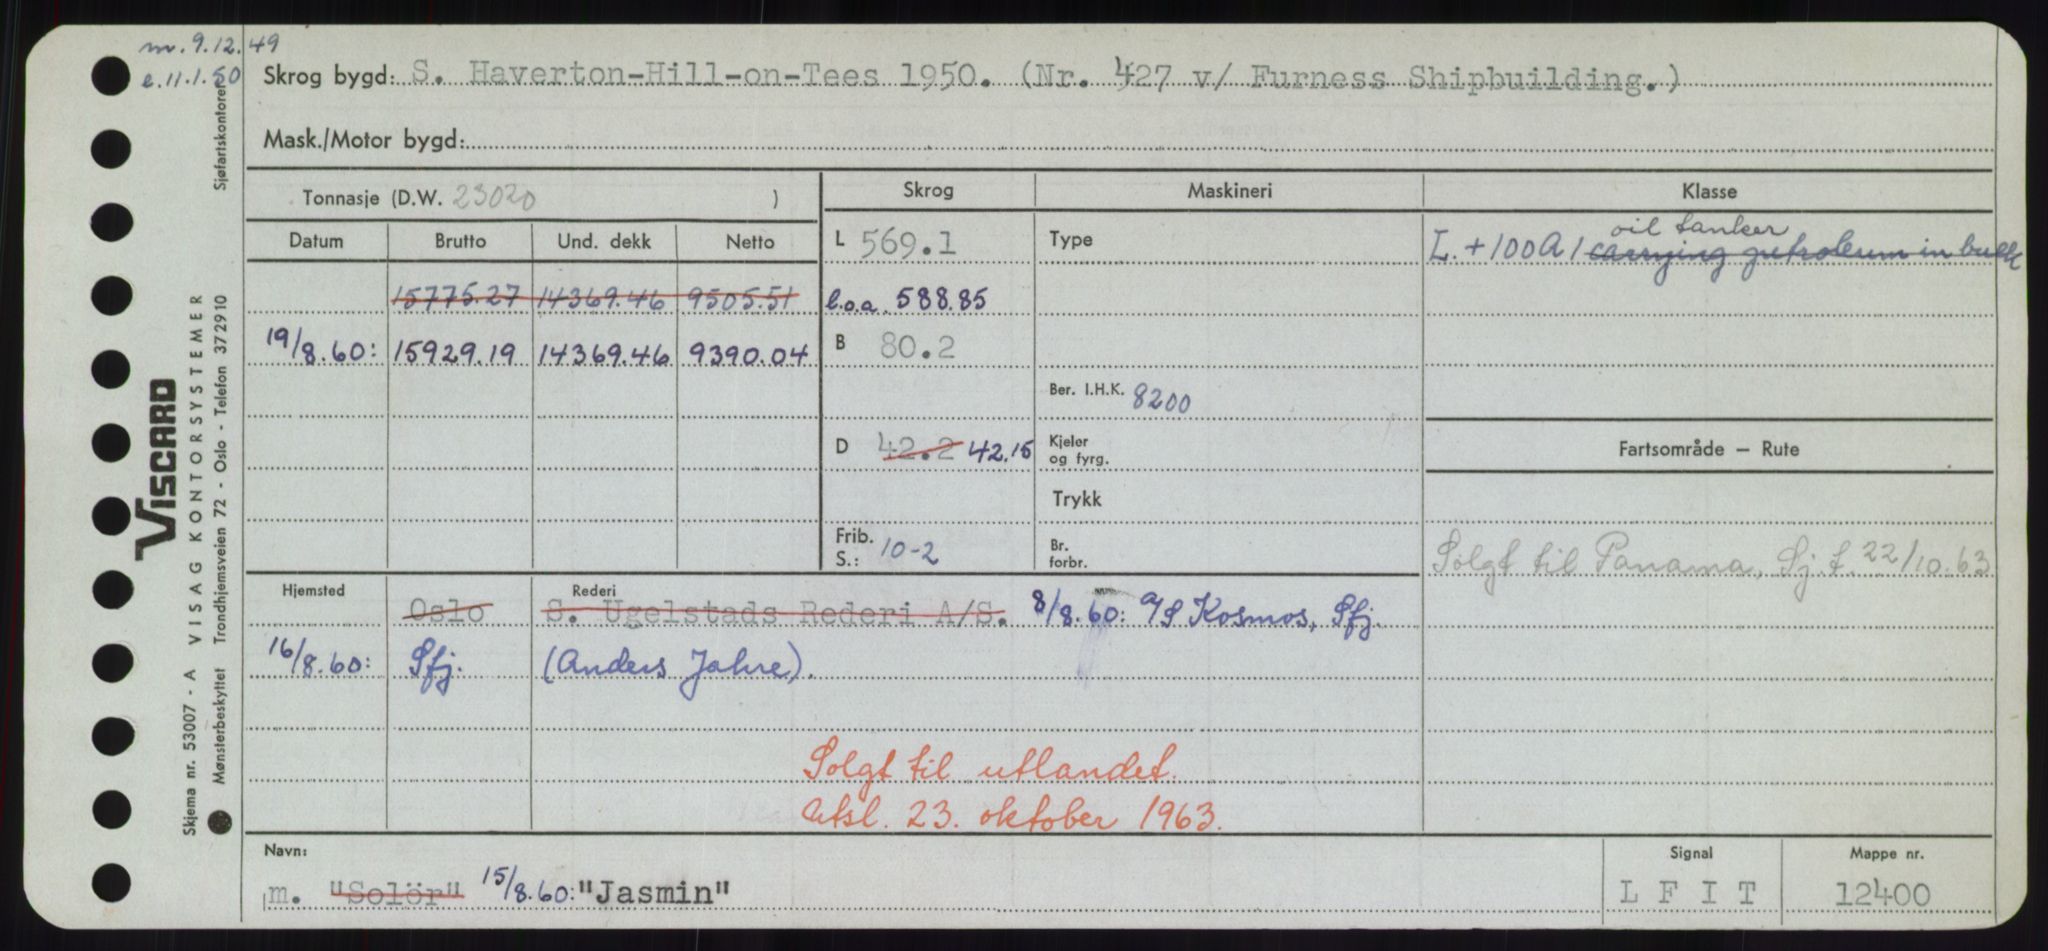 m. 9.12.49
e. 11.1.50
Skrog bygd: S. Haverton-Hill-on-Tees 1950. (Nr. 427 v/ Furness Shipbuilding.)
Mask./Motor bygd:
Tonnasje (D.W. 23020 )
Skrog Maskineri Klasse
Datum Brutto Und. dekk Netto
L 569.1 Type
oil tanker
L. +100A1 carrying petroleum in bulk
15775.27 14369.46 9505.51 l.o.a. 588.85
19/8.60: 15929.19 14369.46 9390.04 B 80.2
Ber. I.H.K. 8200
D 42.2 42.15 Kjeler
og fyrg.
Fartsområde – Rute
Trykk
Frib.
S.: 10-2
Br.
forbr.
Solgt til Panama, Sj.t. 22/10.63
Hjemsted Rederi
Oslo S. Ugelstads Rederi A/S. 8/8.60: A/S Kosmos, Sfj.
16/8.60: Sfj. (Anders Jahre).
Solgt til utlandet.
Utsl. 23. oktober 1963.
Navn: Signal Mappe nr.
m. "Solör" 15/8.60: "Jasmin" L F I T 12400
Sjøfartskontorer
VISCARD
VISAG KONTORSYSTEMER
Trondhjemsveien 72 - Oslo - Telefon 372910
Skjema nr. 53007 - A
Mønsterbeskyttet